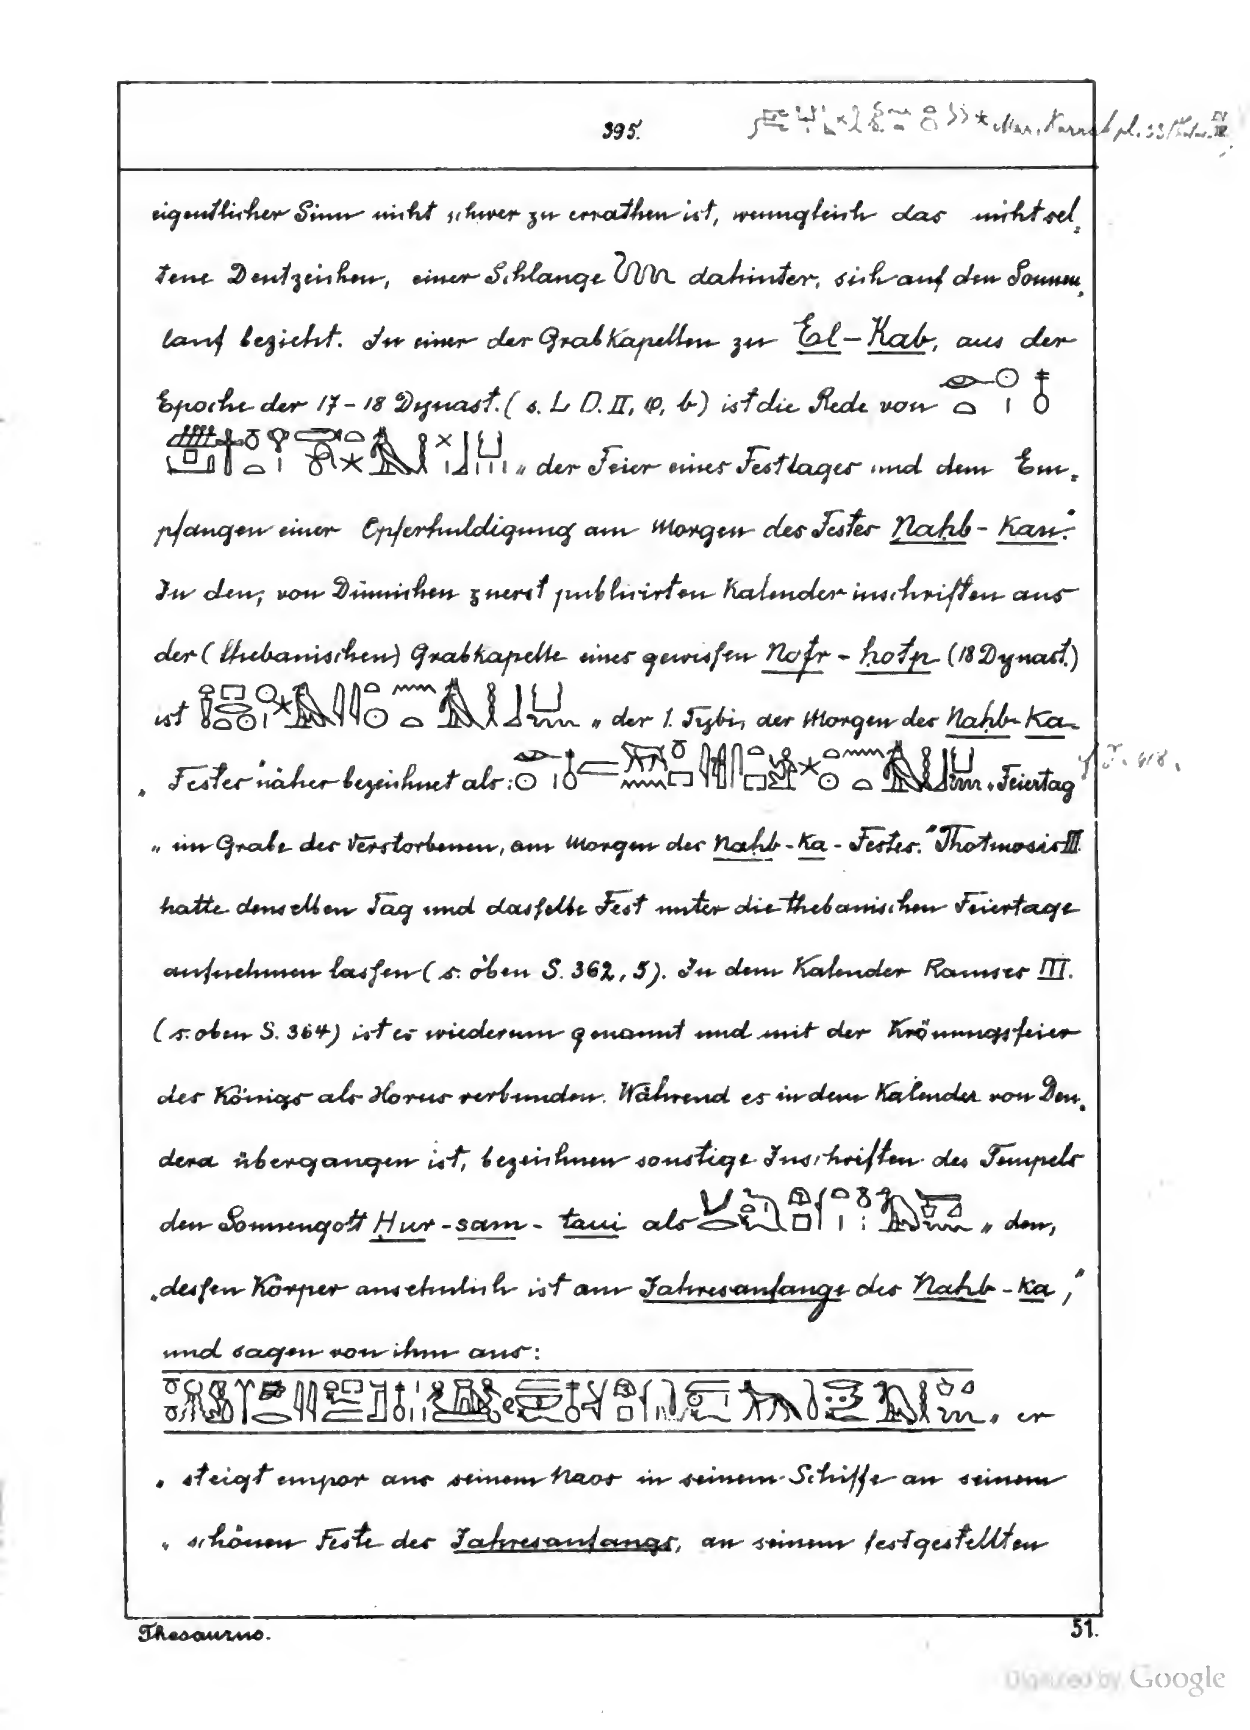 395.
eigentlicher Sinn nicht schwer zu errathen ist, wenngleich das nicht sel=
tene Deutzeichen, einer Schlange dahinter, sich auf den Sonnen=
lauf bezieht. In einer der Grabkapellen zu El-Kab, aus der
Epoche der 17-18 Dynast. (s. L. D. II, b) ist die Rede von
„ der Feier eines Festtages und dem Em=
pfangen einer Opferhuldigung am Morgen des Festes Nahb-Kau."
In den, von Dümichen zuerst publicirten Kalenderinschriften aus
der (thebanischen) Grabkapelle eines gewissen Nofr-hotp (18 Dynast.)
ist „ der 1. Tybi, der Morgen des Nahb-Ka-
„ Festes" näher bezeichnet als: „Feiertag
„ im Grabe des Verstorbenen, am Morgen des Nahb-Ka-Festes." Thotmosis III.
hatte denselben Tag und dasselbe Fest unter die thebanischen Feiertage
aufnehmen lassen (s. oben S. 362, 5). In dem Kalender Ramses III.
(s. oben S. 364) ist es wiederum genannt und mit der Krönungsfeier
des Königs als Horus verbunden. Während es in dem Kalender von Den=
dera übergangen ist, bezeichnen sonstige Inschriften des Tempels
den Sonnengott Hur-sam-taui als „ den,
„dessen Körper ansehnlich ist am Jahresanfange des Nahb-Ka,"
und sagen von ihm aus:
„ er
„ steigt empor aus seinem Naos in seinem Schiffe an seinem
„ schönen Feste des Jahresanfangs, an seinem festgestellten
Thesaurus.
51.
Digitized by Google